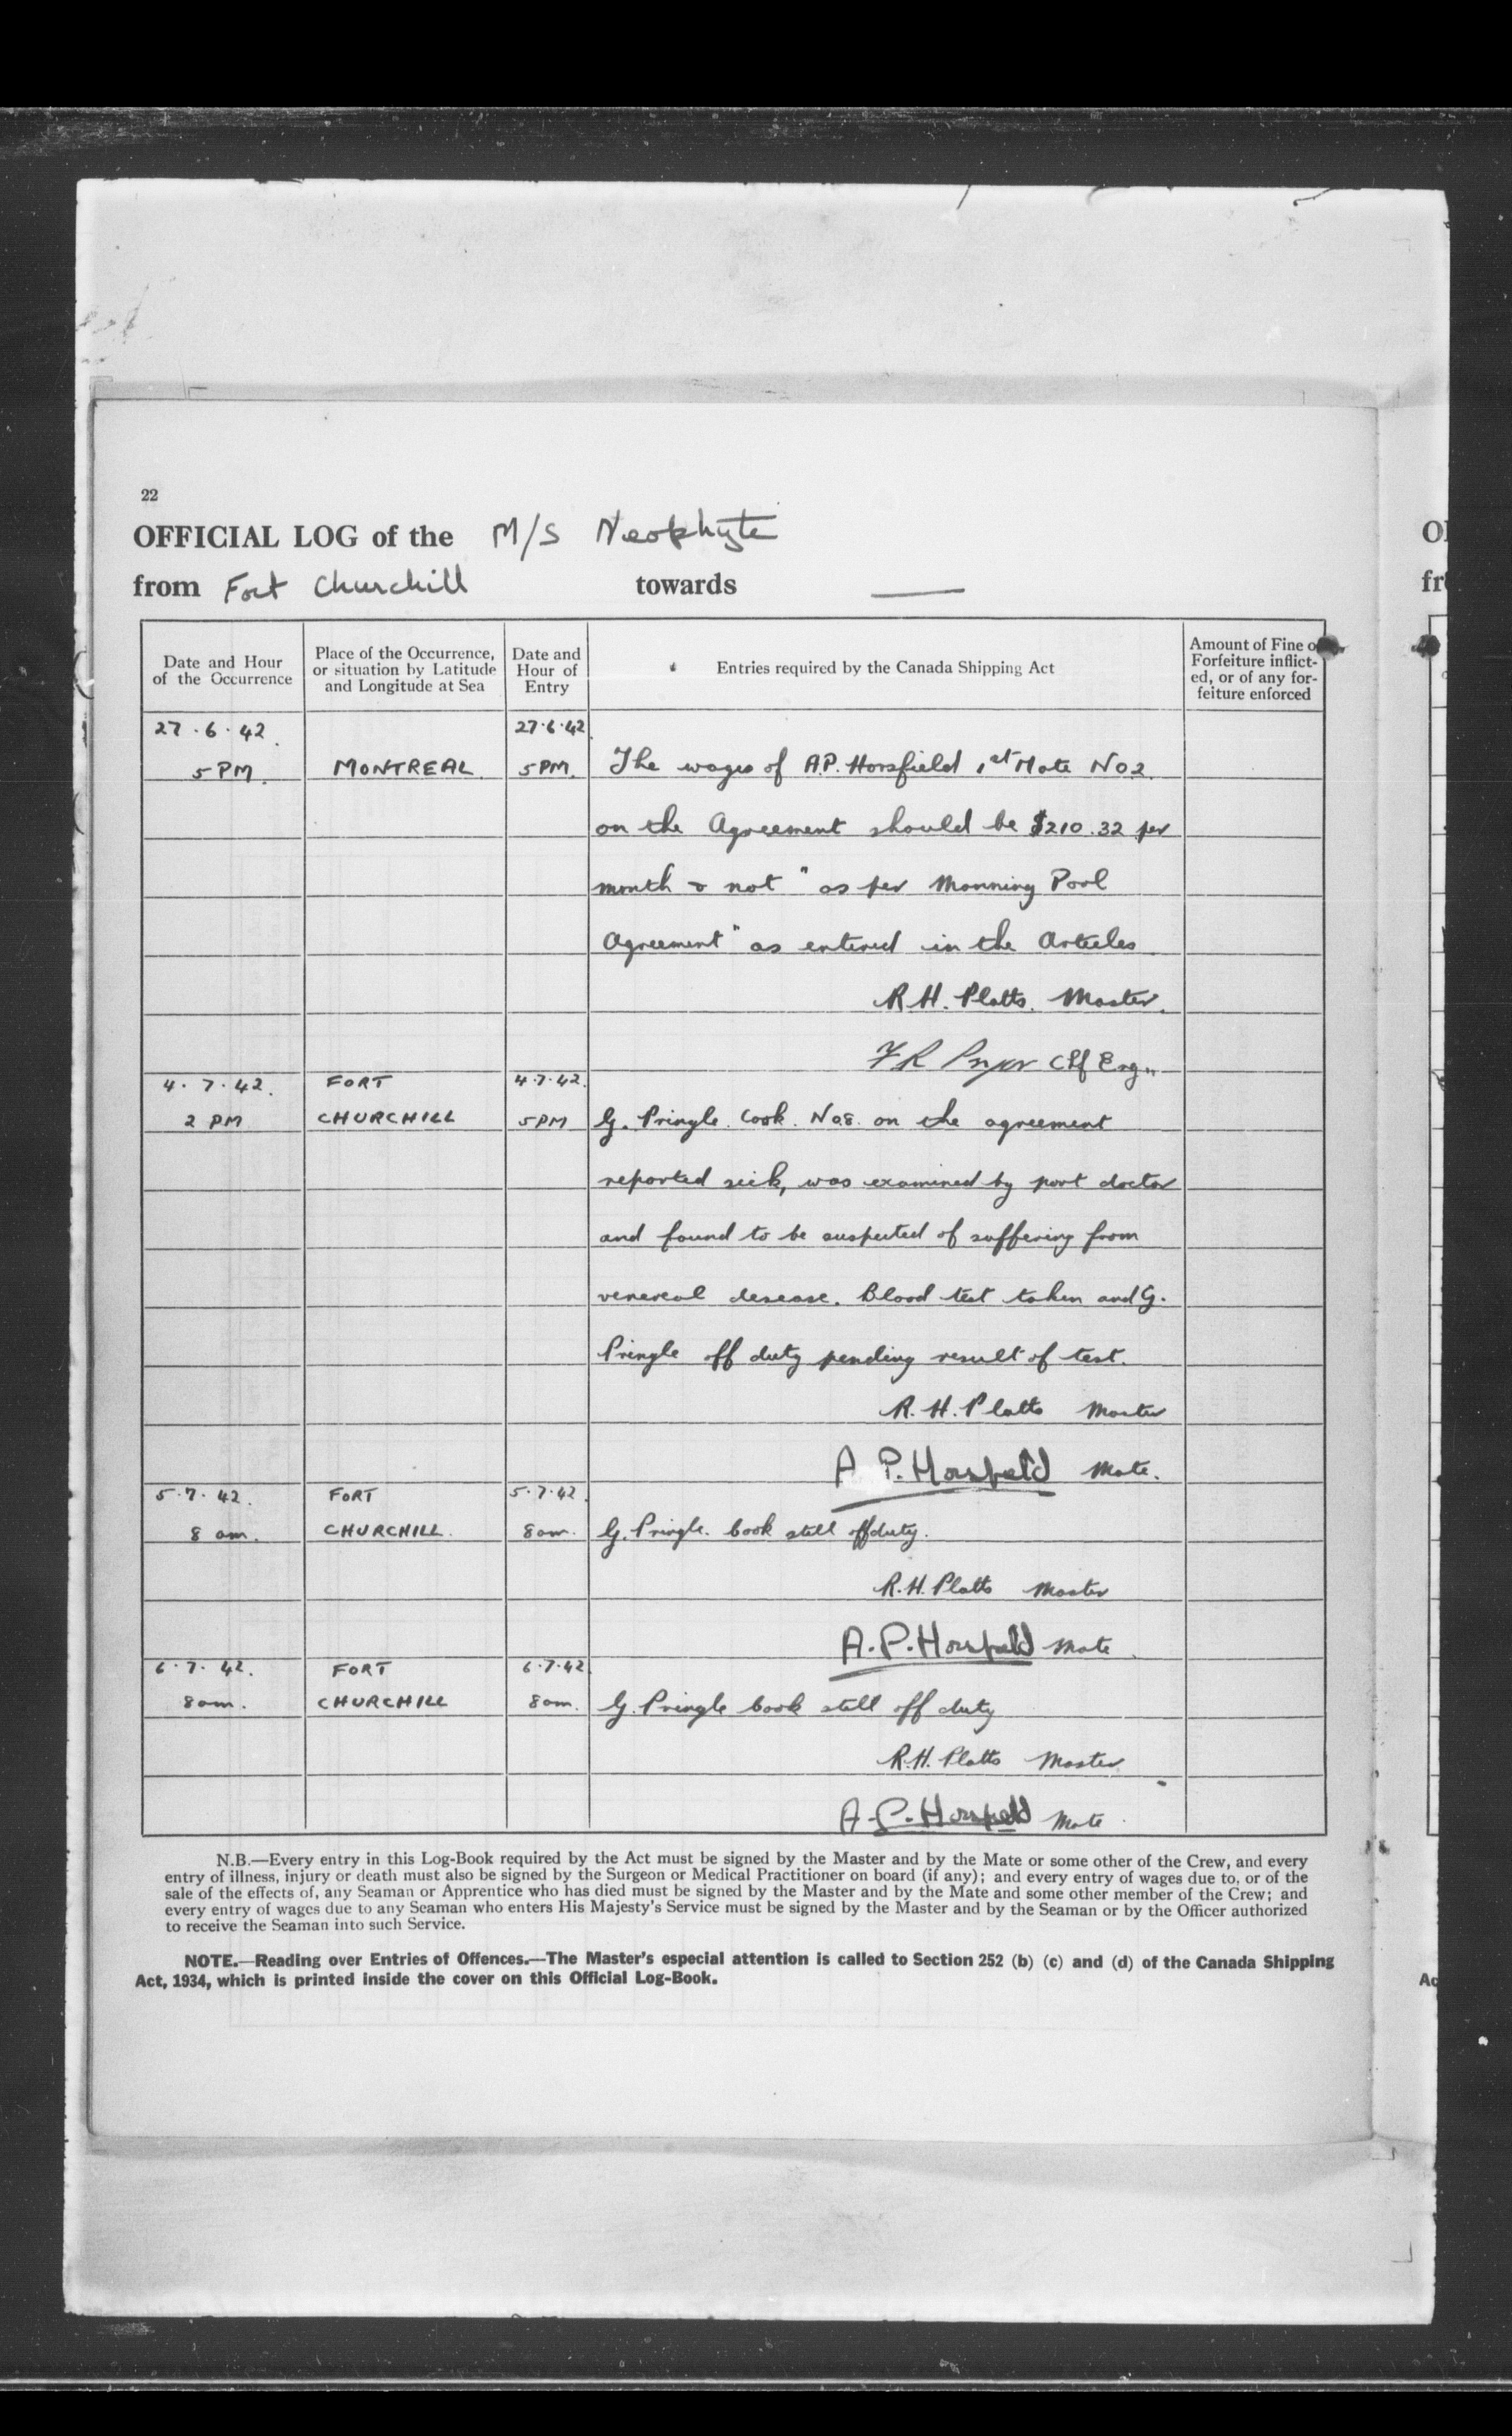 22
OFFICIAL LOG of the M/S Neophyte
from Fort Churchill towards —
Date and Hour of the Occurrence
Place of the Occurrence, or situation by Latitude and Longitude at Sea
Date and Hour of Entry
Entries required by the Canada Shipping Act
Amount of Fine o Forfeiture inflict-ed, or of any for-feiture enforced
27.6.42. 27.6.42.
5 PM. MONTREAL. 5 PM. The wages of A.P. Horsfield 1st Mate No 2.
on the Agreement should be $210.32 per
month & not " as per Manning Pool
Agreement" as entered in the Articles.
R.H. Platts. Master.
F R Chf Eng"
4.7.42. FORT 4.7.42.
2 PM CHURCHILL 5PM G. Pringle. Cook. No 8. on the agreement
reported sick, was examined by port doctor
and found to be suspected of suffering from
venereal desease. Blood test taken and G.
Pringle off duty pending result of test.
R.H. Platts Master
A P. Horsfield Mate.
5.7.42. FORT 5.7.42.
8 am. CHURCHILL. 8am. G. Pringle. Cook still off duty.
R.H. Platts Master
A.P. Horsfield Mate.
6.7.42. FORT 6.7.42.
8am. CHURCHILL 8am. G. Pringle Cook still off duty
R.H. Platts Master.
A.P. Horsfield Mate.
N.B.—Every entry in this Log-Book required by the Act must be signed by the Master and by the Mate or some other of the Crew, and every
entry of illness, injury or death must also be signed by the Surgeon or Medical Practitioner on board (if any); and every entry of wages due to, or of the
sale of the effects of, any Seaman or Apprentice who has died must be signed by the Master and by the Mate and some other member of the Crew; and
every entry of wages due to any Seaman who enters His Majesty's Service must be signed by the Master and by the Seaman or by the Officer authorized
to receive the Seaman into such Service.
NOTE.—Reading over Entries of Offences.—The Master's especial attention is called to Section 252 (b) (c) and (d) of the Canada Shipping
Act, 1934, which is printed inside the cover on this Official Log-Book.